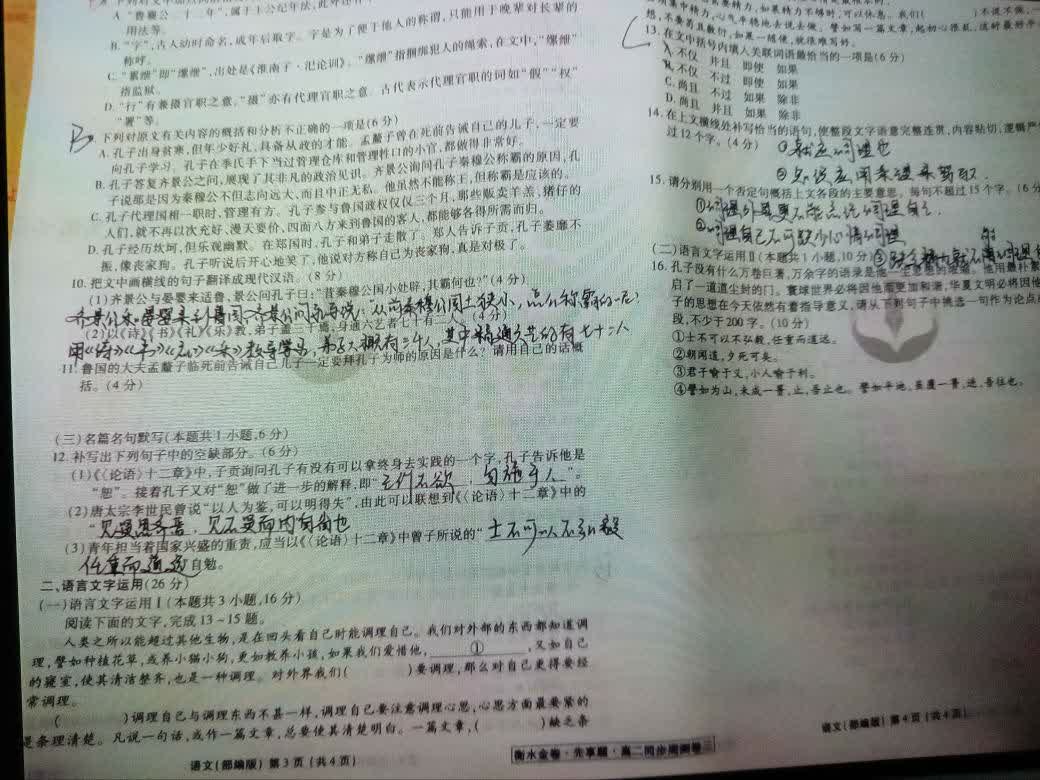 A."鲁襄公二十二年",属于王公纪年法,此外还有
用法等。
B."字",古人幼时命名,成年后取字。字是为了便于他人的称谓,只能用于晚辈对长辈的
称呼。
C."累绁"即"缧绁",出处是《淮南子·汜论训》。"缧绁"指捆绑犯人的绳索,在文中,"缧绁"
指监狱。
D."行"有兼摄官职之意,"摄"亦有代理官职之意。古代表示代理官职的词如"假""权"
"署"等。
B
下列对原文有关内容的概括和分析不正确的一项是(6分)
A.孔子出身贫寒,但年少好礼,具备从政的才能。孟釐子曾在死前告诫自己的儿子,一定要
向孔子学习。孔子在季氏手下当过管理仓库和管理牲口的小官,都做得非常好。
B.孔子答复齐景公之问,展现了其非凡的政治见识。齐景公询问孔子秦穆公称霸的原因,孔
子说那是因为秦穆公不但志向远大,而且中正无私。他虽然不能称王,但称霸是应该的。
C.孔子代理国相一职时,管理有方。孔子参与鲁国政权仅仅三个月,那些贩卖羊羔、猪仔的
人们,就不再以次充好、漫天要价,四面八方来到鲁国的客人,都能够各得所需而归。
D.孔子经历坎坷,但乐观幽默。在郑国时,孔子和弟子走散了。郑人告诉子贡,孔子萎靡不
振,像丧家狗。孔子听说后开心地笑了,他说对方称自己为丧家狗,真是对极了。
10.把文中画横线的句子翻译成现代汉语。(8分)
(1)齐景公与晏婴来适鲁,景公问孔子曰:"昔秦穆公国小处辟,其霸何也?"(4分)
(2)以《诗》《书》《礼》《乐》教,弟子盖三千焉,身通六艺者七十有二人。(4分)
用《诗》《书》《礼》《乐》教导学生,弟子大概有三千人,其中精通六艺的有七十二人
11.鲁国的大夫孟釐子临死前告诫自己儿子一定要拜孔子为师的原因是什么?请用自己的话概
括。(4分)
(三)名篇名句默写(本题共1小题,6分)
12.补写出下列句子中的空缺部分。(6分)
(1)《〈论语〉十二章》中,子贡询问孔子有没有可以拿终身去实践的一个字,孔子告诉他是
"恕"。接着孔子又对"恕"做了进一步的解释,即"己所不欲,勿施于人"。
(2)唐太宗李世民曾说"以人为鉴,可以明得失",由此可以联想到《〈论语〉十二章》中的
"见贤思齐焉,见不贤而内自省也
(3)青年担当着国家兴盛的重责,应当以《〈论语〉十二章》中曾子所说的"士不可以不弘毅
任重而道远自勉。
二、语言文字运用(26分)
(一)语言文字运用Ⅰ(本题共3小题,16分)
阅读下面的文字,完成13~15题。
人类之所以能超过其他生物,是在回头看自己时能调理自己。我们对外部的东西都知道调
理,譬如种植花草,或养小猫小狗,更如教养小孩,如果我们爱惜他,①,又如自己
的寝室,使其清洁整齐,也是一种调理。对外界我们( )要调理,那么对自己更得要经
常调理。
( )调理自己与调理东西不甚一样,调理自己要注意调理心思,心思方面最要紧的
是条理清楚。凡说一句话,或作一篇文章,总要使其清楚明白。一篇文章,( )缺乏条
语文(部编版) 第3页(共4页)
衡水金卷·先享题·高二同步周测卷三
要精力,如果精力不够时,可以休息。我们( )不说不做,
集中精力,心气平稳地去说去做。譬如写一篇文章,起初心很乱,这时最好平
想,不要苟且敷衍,如果一随便,就很难写好。
13.在文中括号内填入关联词语最恰当的一项是(6分)
A.不仅 并且 即使 如果
B.不仅 不过 即使 如果
C.尚且 不过 如果 除非
D.尚且 并且 如果 除非
14.在上文横线处补写恰当的语句,使整段文字语意完整连贯,内容贴切,逻辑严
过12个字。(4分)
15.请分别用一个否定句概括上文各段的主要意思。每句不超过15个字。(6分
(二)语言文字运用Ⅱ(本题共1小题,10分)
16.孔子没有什么万卷巨著,万余字的语录是他
启了一道道尘封的门。寰球世界必将因他而更加和谐,华夏文明必将因他
子的思想在今天依然有着指导意义,请从下列句子中挑选一句作为论点
段,不少于200字。(10分)
①士不可以不弘毅,任重而道远。
②朝闻道,夕死可矣。
③君子喻于义,小人喻于利。
④譬如为山,未成一篑,止,吾止也。譬如平地,虽覆一篑,进,吾往也。
语文(部编版) 第4页(共4页)